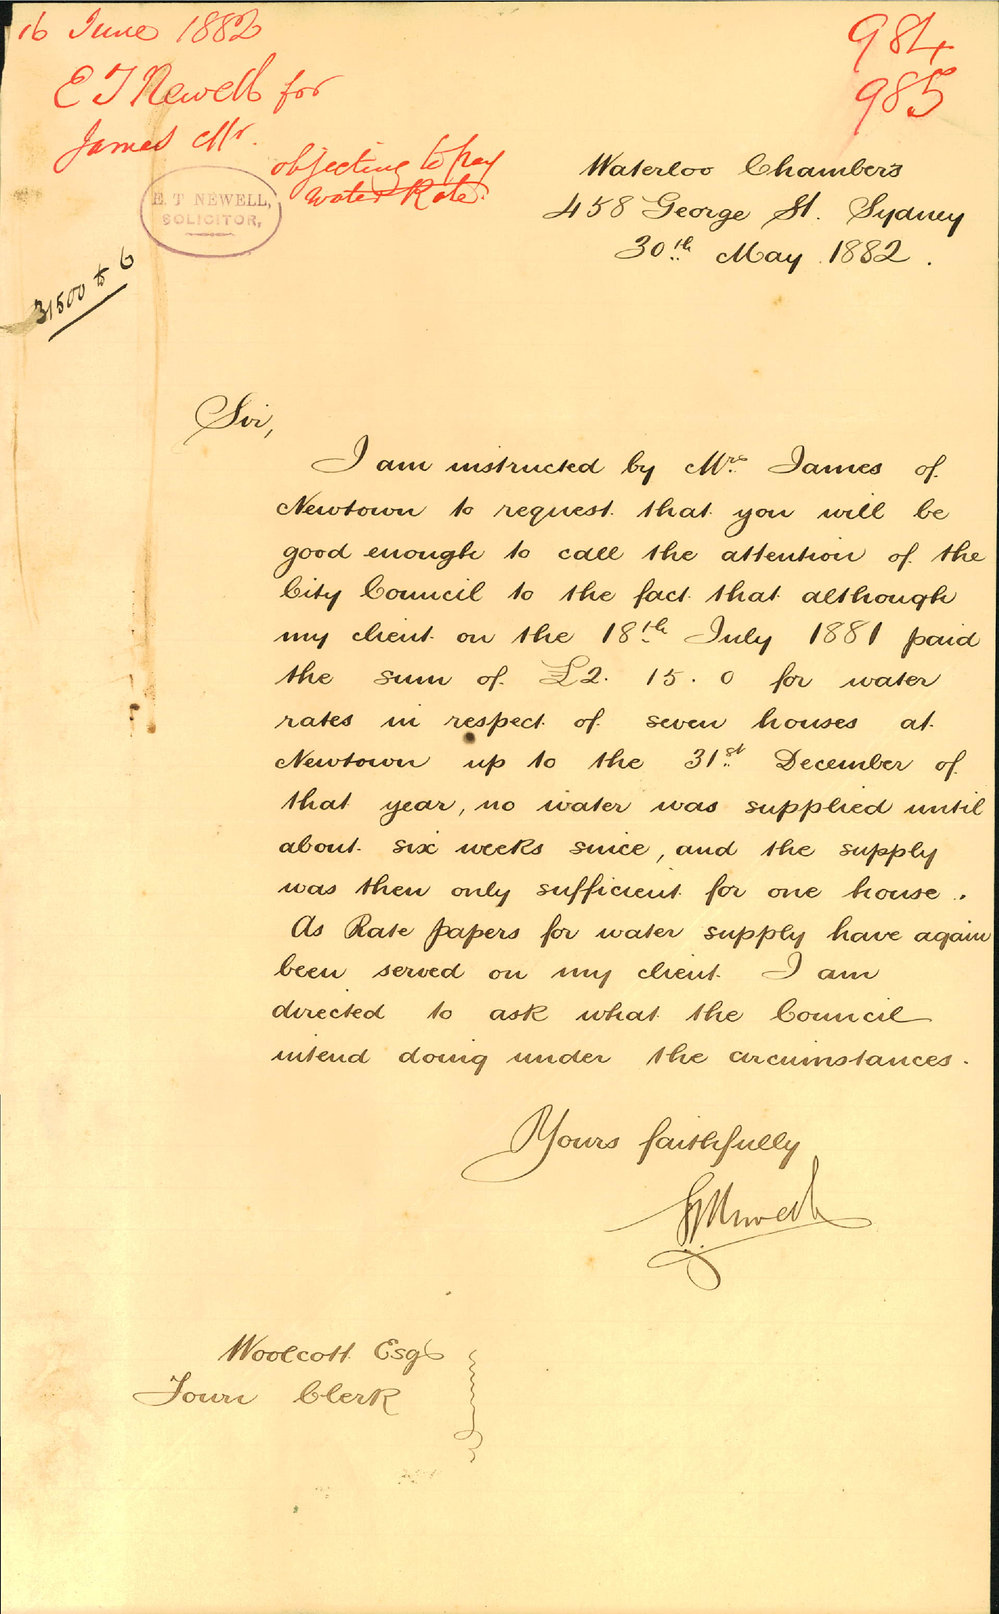 16 June 1882
E T Newell for
James Mr.
objecting to pay
water Rate.
984
985
E. T NEWELL,
SOLICITOR,
31500 to 6
Waterloo Chambers
458 George St. Sydney
30th May 1882.
Sir,
I am instructed by Mrs James of
Newtown to request that you will be
good enough to call the attention of the
City Council to the fact that although
my client on the 18th July 1881 paid
the sum of £2. 15. 0 for water
rates in respect of seven houses at
Newtown up to the 31st December of
that year, no water was supplied until
about six weeks since, and the supply
was then only sufficient for one house.
As Rate papers for water supply have again
been served on my client I am
directed to ask what the Council
intend doing under the circumstances.
Yours faithfully
E T Newell
Woolcott Esq
Town Clerk